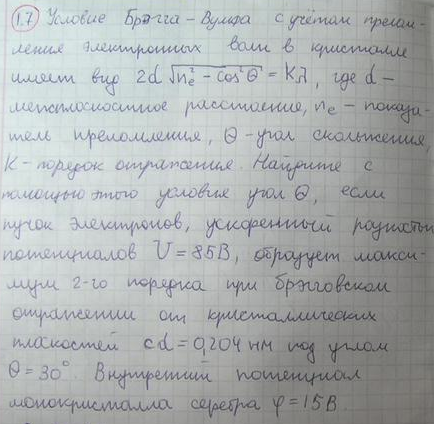 1.7 Условие Брэгга-Вульфа с учётом прелом-
ления электронных волн в кристалле
имеет вид 2d √(nₑ² - cos²θ) = Kλ, где d -
межплоскостное расстояние, nₑ - показа-
тель преломления, θ - угол скольжения,
K - порядок отражения. Найдите с
помощью этого условия угол θ, если
пучок электронов, ускоренный разностью
потенциалов U = 85В, образует макси-
мум 2-го порядка при брэгговском
отражении от кристаллических
плоскостей с d = 0,204 нм под углом
θ = 30°. Внутренний потенциал
монокристалла серебра φ = 15В.